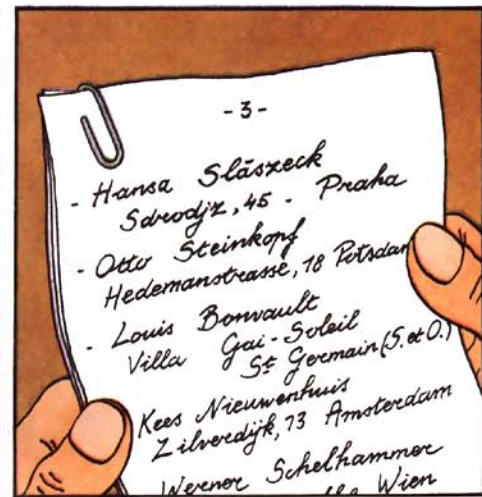 - 3 -
- Hansa Slāszeck
Sdrodjz, 45 - Praha
- Otto Steinkopf
Hedemanstrasse, 18 Potsdam
- Louis Bonvault
Villa Gai-Soleil
St Germain (S. et O.)
Kees Nieuwenhuis
Zilverdijk, 73 Amsterdam
Werner Schelhammer
Wien